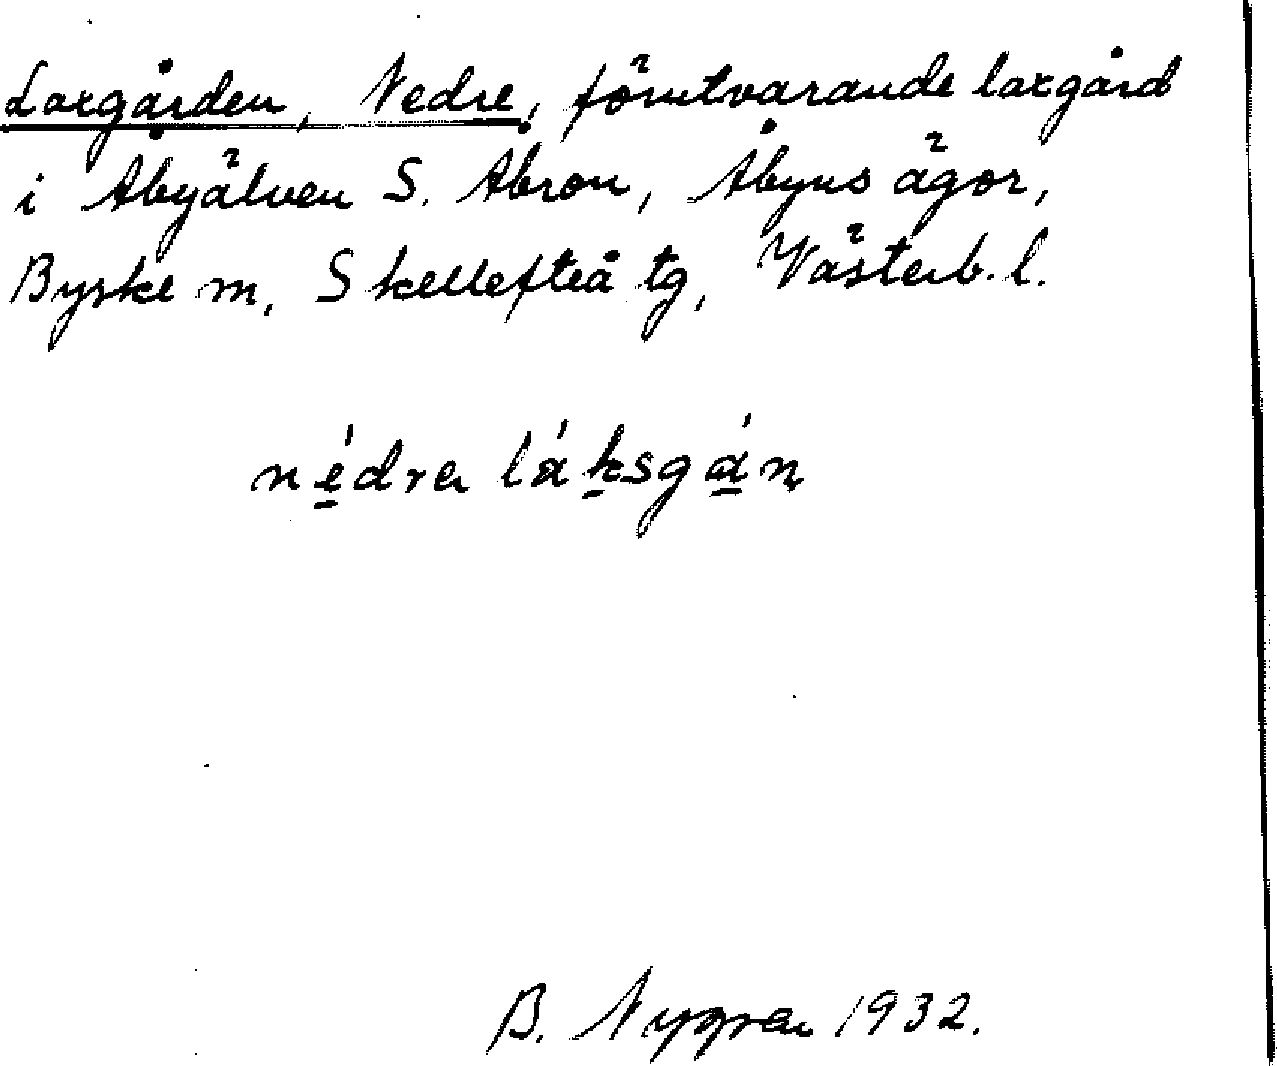 Laxgården, Nedre, förutvarande laxgård
i Åbyälven S. Åbron, Åbyns ägor,
Byske sn, Skellefteå tg, Västerb. l.
nédra láksgán
B. Nygren 1932.